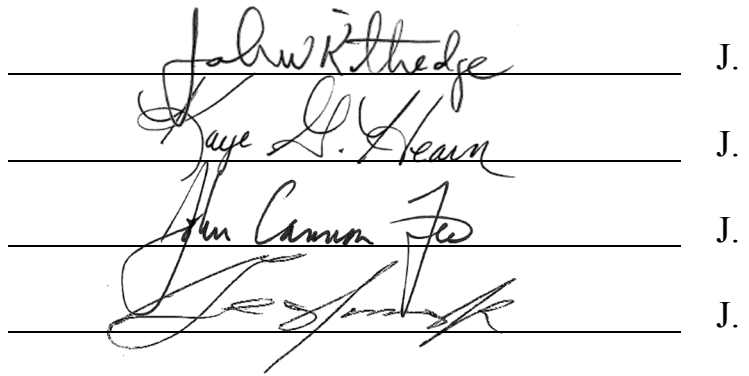 John W Kittredge J.
Kaye G. Hearn J.
John Cannon Few J.
J.